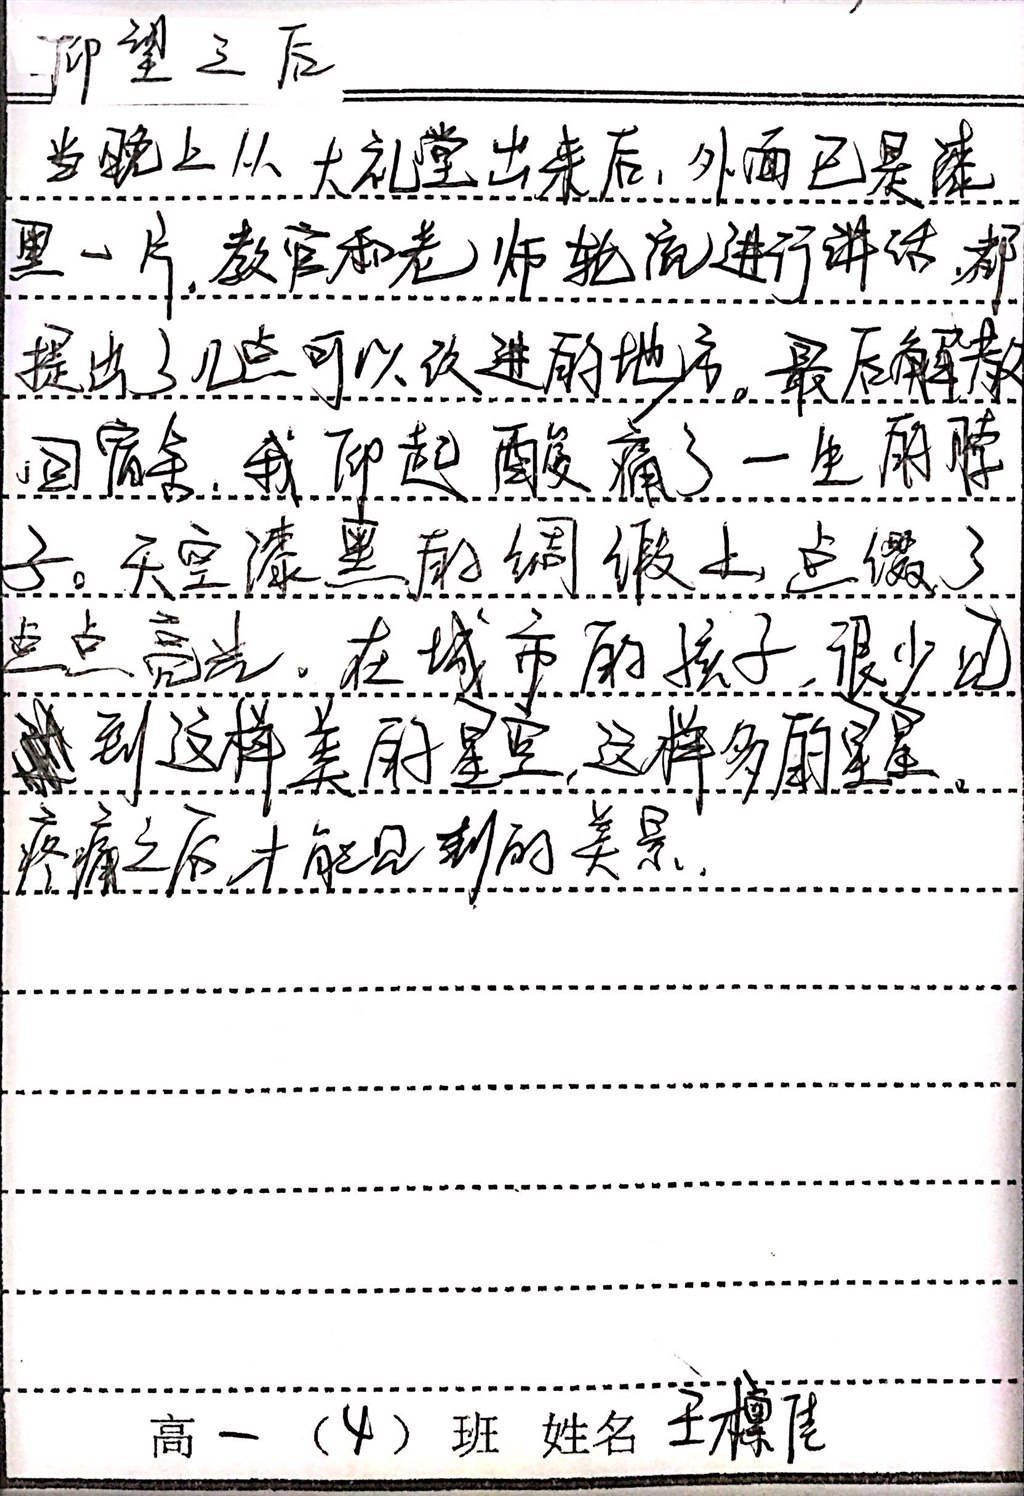 仰望之后
当晚上从大礼堂出来后，外面已是漆
黑一片，教官和老师轮流进行讲话，都
提出了几点可以改进的地方。最后解散
回宿舍，我仰起酸痛了一生的脖
子。天空漆黑的绸缎上，点缀了
点点亮光。在城市的孩子，很少见
到这样美的星空，这样多的星星。
疼痛之后，才能见到的美景．
高一（4）班 姓名 王檩佳